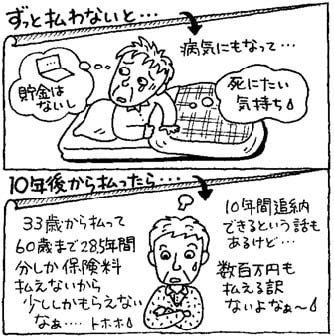 ずっと払わないと…
病気にもなって…
貯金は
ないし
死にたい
気持ち
10年後から払ったら…
33歳から払って
60歳まで28.5年間
分しか保険料
払えないから
少ししかもらえない
なぁ…. トホホ
10年間追納
できるという話も
あるけど…
数百万円も
払える訳
ないよなぁ〜